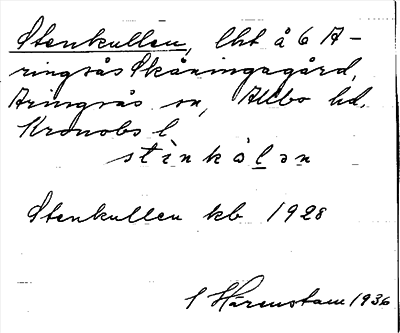 Stenkullen, lht å 6 A-
ringsås Skåningagård,
Aringsås sn, Allbo hd,
Kronobs l
stìnkòlən
Stenkullen kb 1928
Härenstam 1936